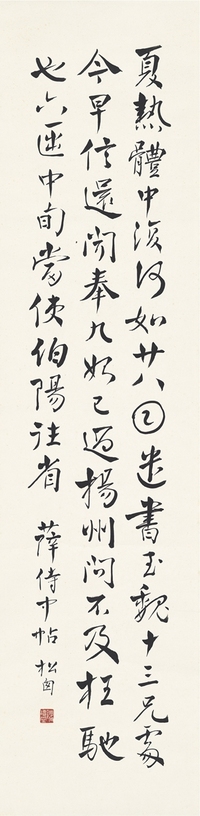 夏熱體中復何如廿八㔔遣書至魏十三兄處
今早信還聞奉九姊已過揚州問不及枉馳
也六區中旬當使伯陽往省
薛侍中帖 松窗